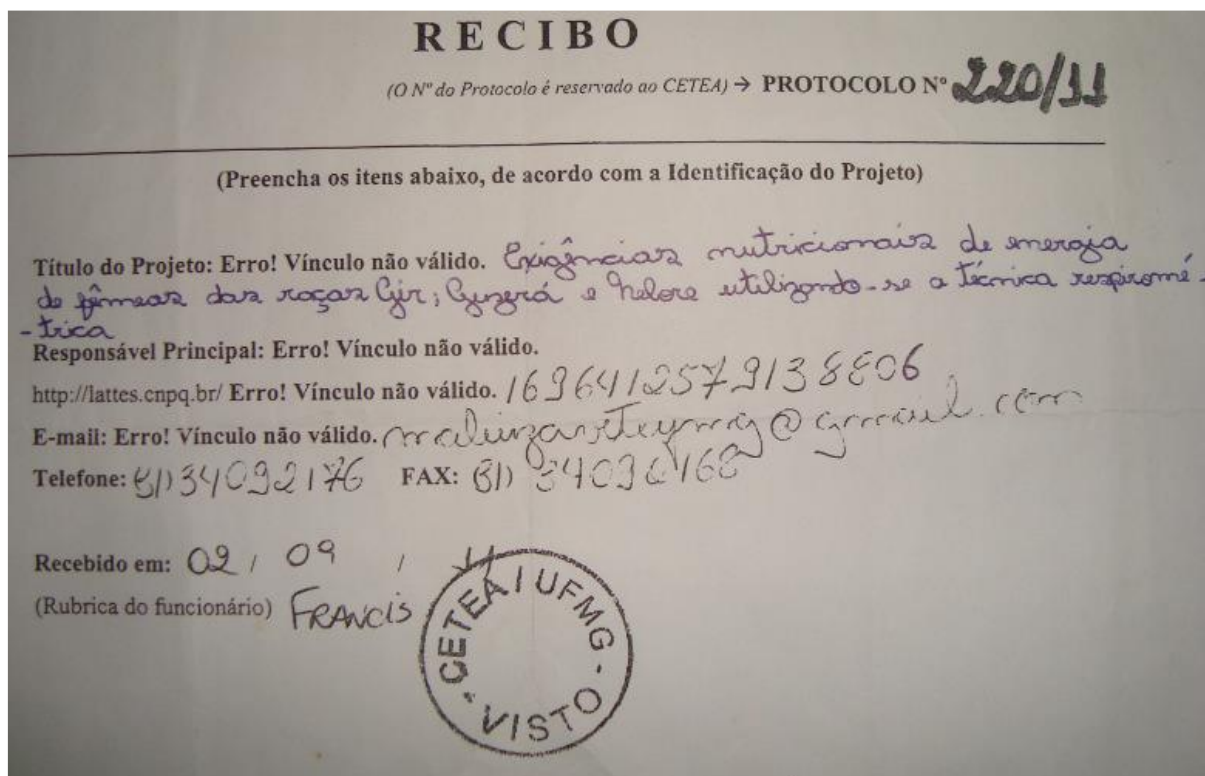 RECIBO
(O Nº do Protocolo é reservado ao CETEA) → PROTOCOLO Nº 220/11
(Preencha os itens abaixo, de acordo com a Identificação do Projeto)
Título do Projeto: Erro! Vínculo não válido. Exigências nutricionais de energia
de fêmeas das raças Gir; Guzerá e Nelore utilizando-se a técnica respiromé-
-trica
Responsável Principal: Erro! Vínculo não válido.
http://lattes.cnpq.br/ Erro! Vínculo não válido. /6964125791388806
E-mail: Erro! Vínculo não válido. @gmail.com
Telefone: 31) 34092176 FAX: 31)
Recebido em: 02 / 09 / 11
(Rubrica do funcionário) FRANCIS
CETEA / UFMG - VISTO -